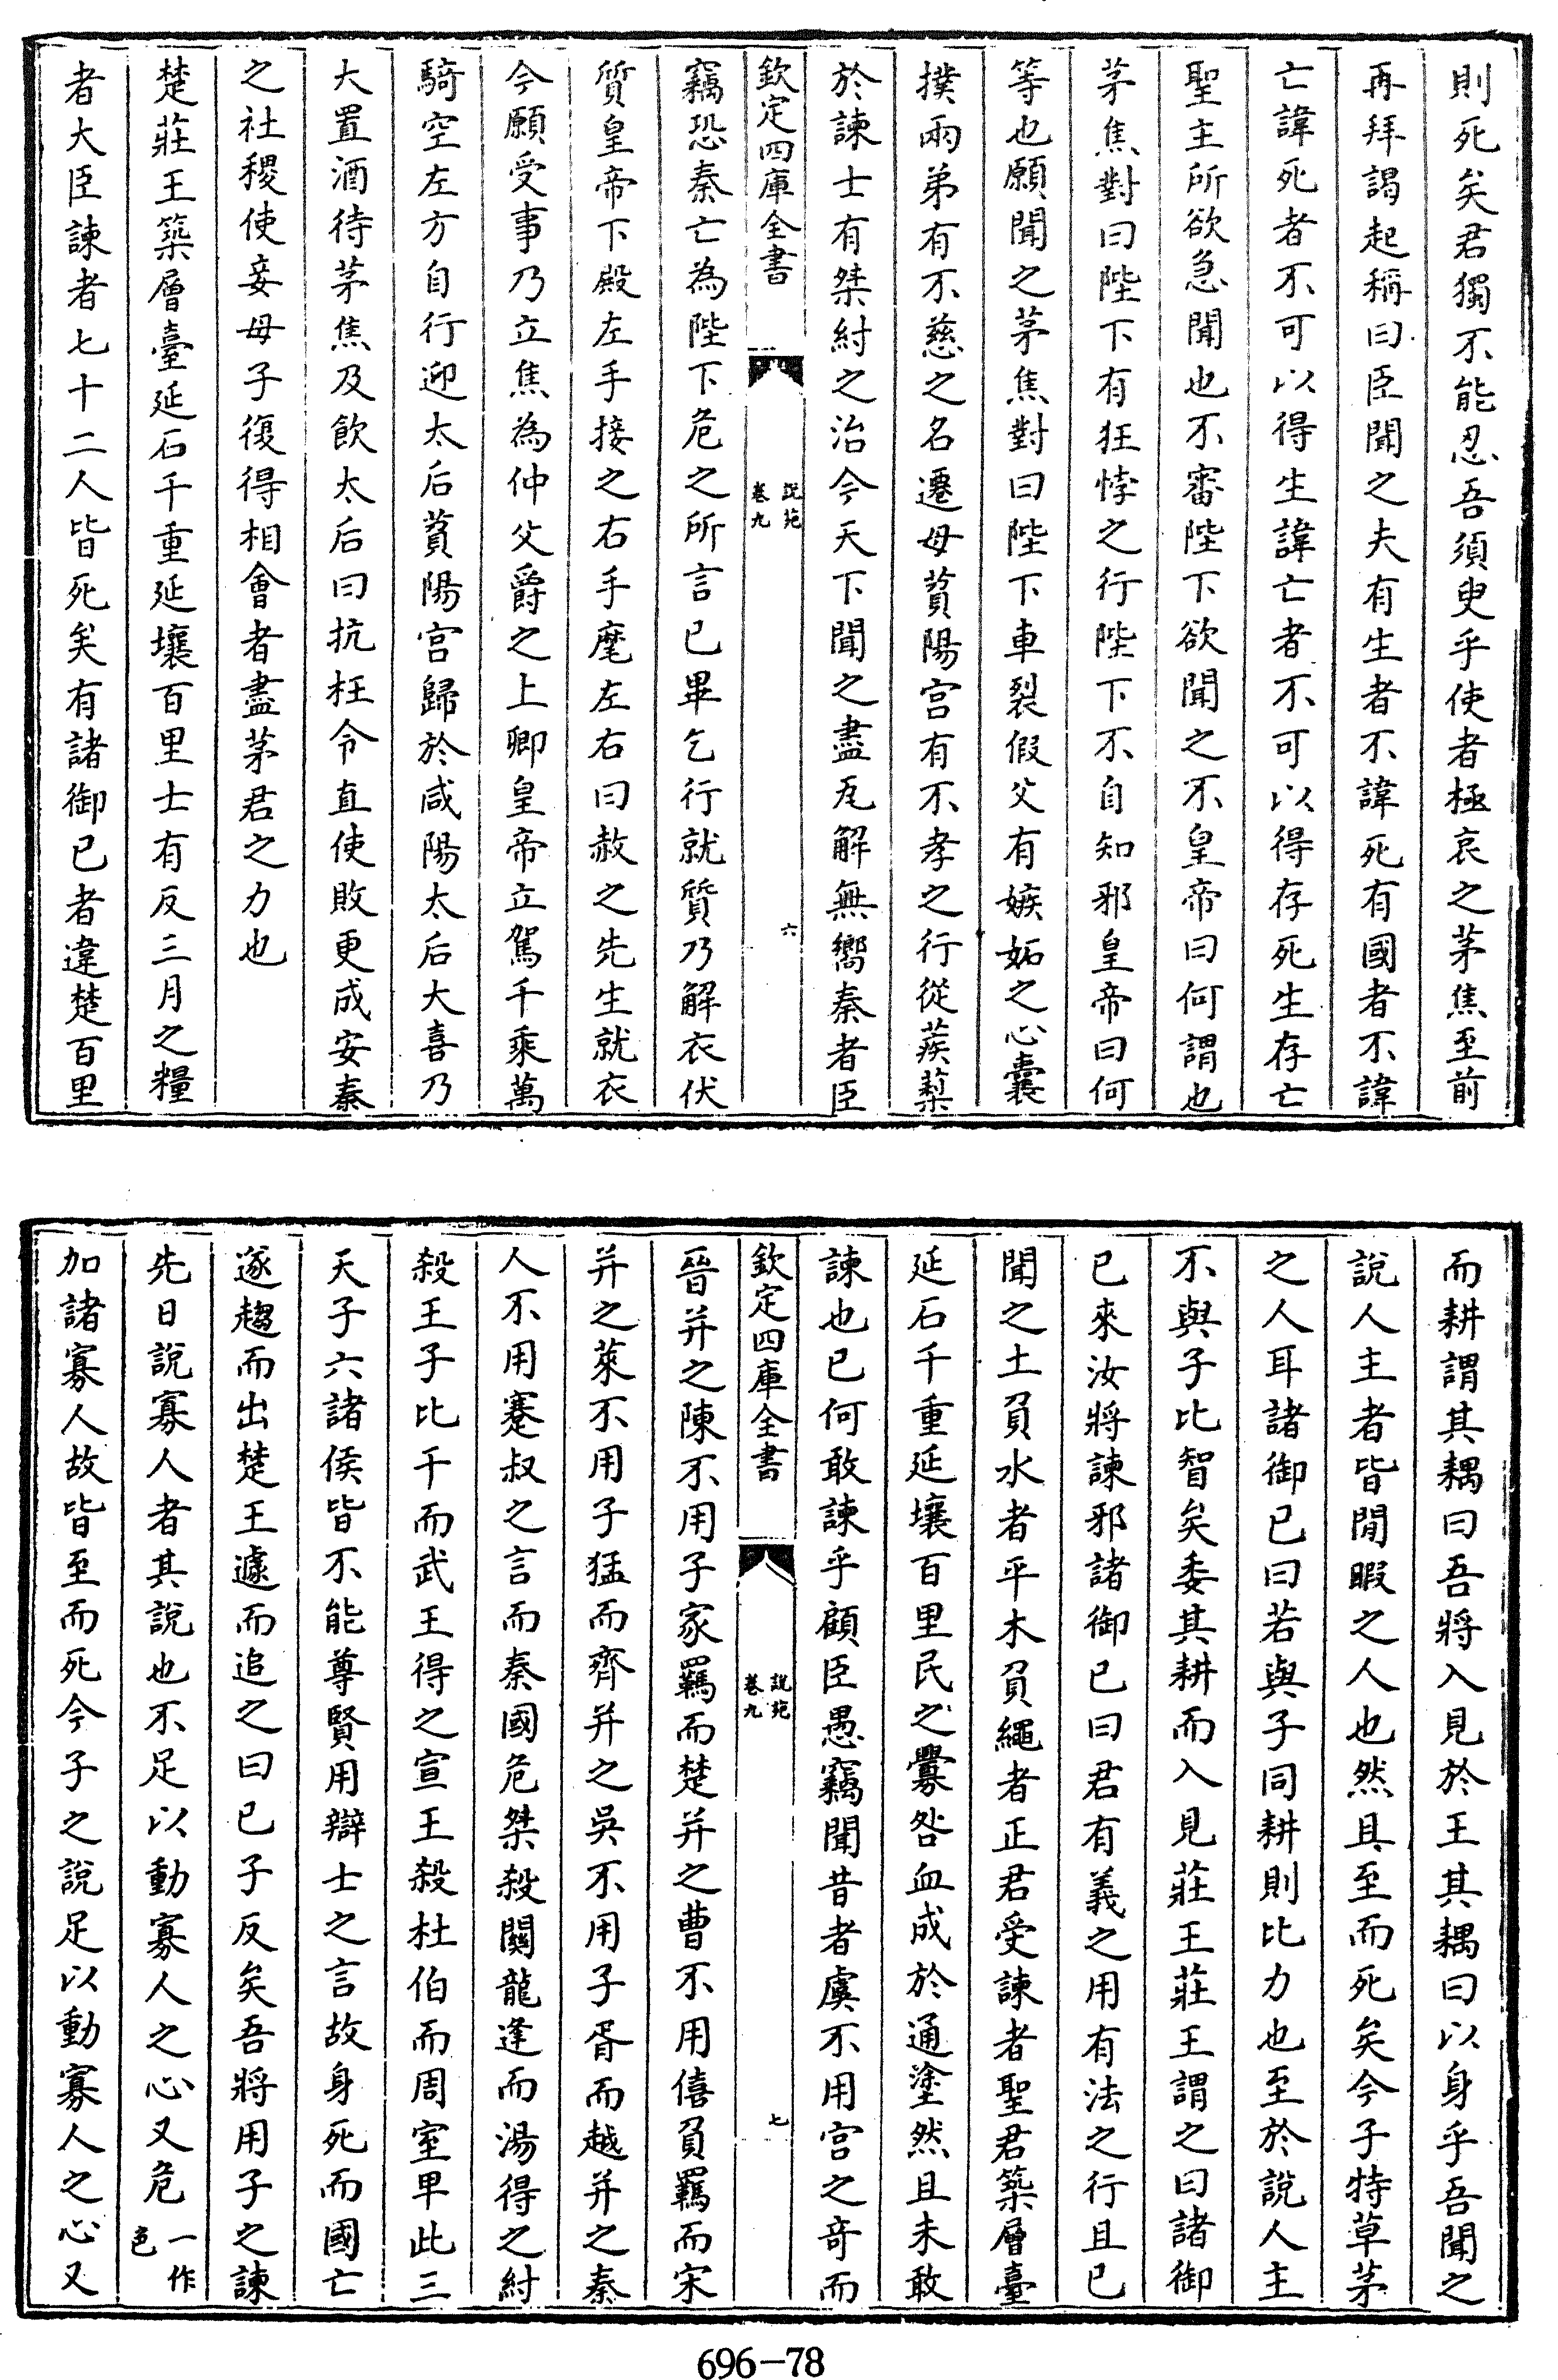 則死矣君獨不能忍吾須臾乎使者極哀之茅焦至前
再拜謁起稱曰臣聞之夫有生者不諱死有國者不諱
亡諱死者不可以得生諱亡者不可以得存死生存亡
聖主所欲急聞也不審陛下欲聞之不皇帝曰何謂也
茅焦對曰陛下有狂悖之行陛下不自知邪皇帝曰何
等也願聞之茅焦對曰陛下車裂假父有嫉妬之心囊
撲兩弟有不慈之名遷母萯陽宫有不孝之行從蒺蔾
於諫士有桀紂之治今天下聞之盡瓦解無嚮秦者臣
欽定四庫全書
說苑
卷九
六
竊恐秦亡為陛下危之所言已畢乞行就質乃解衣伏
質皇帝下殿左手接之右手麾左右曰赦之先生就衣
今願受事乃立焦為仲父爵之上卿皇帝立駕千乘萬
騎空左方自行迎太后萯陽宫歸於咸陽太后大喜乃
大置酒待茅焦及飲太后曰抗枉令直使敗更成安秦
之社稷使妾母子復得相會者盡茅君之力也
楚莊王築層臺延石千重延壤百里士有反三月之糧
者大臣諫者七十二人皆死矣有諸御已者違楚百里
而耕謂其耦曰吾將入見於王其耦曰以身乎吾聞之
說人主者皆閒暇之人也然且至而死矣今子特草茅
之人耳諸御已曰若與子同耕則比力也至於說人主
不與子比智矣委其耕而入見莊王莊王謂之曰諸御
已來汝將諫邪諸御已曰君有義之用有法之行且已
聞之土負水者平木負繩者正君受諫者聖君築層臺
延石千重延壤百里民之釁咎血成於通塗然且未敢
諫也已何敢諫乎顧臣愚竊聞昔者虞不用宫之奇而
欽定四庫全書
說苑
卷九
七
晉并之陳不用子家羈而楚并之曹不用僖負羈而宋
并之萊不用子猛而齊并之吳不用子胥而越并之秦
人不用蹇叔之言而秦國危桀殺關龍逢而湯得之紂
殺王子比干而武王得之宣王殺杜伯而周室卑此三
天子六諸侯皆不能尊賢用辯士之言故身死而國亡
遂趨而出楚王遽而追之曰已子反矣吾將用子之諫
先日說寡人者其說也不足以動寡人之心又危一作色
加諸寡人故皆至而死今子之說足以動寡人之心又
696-78